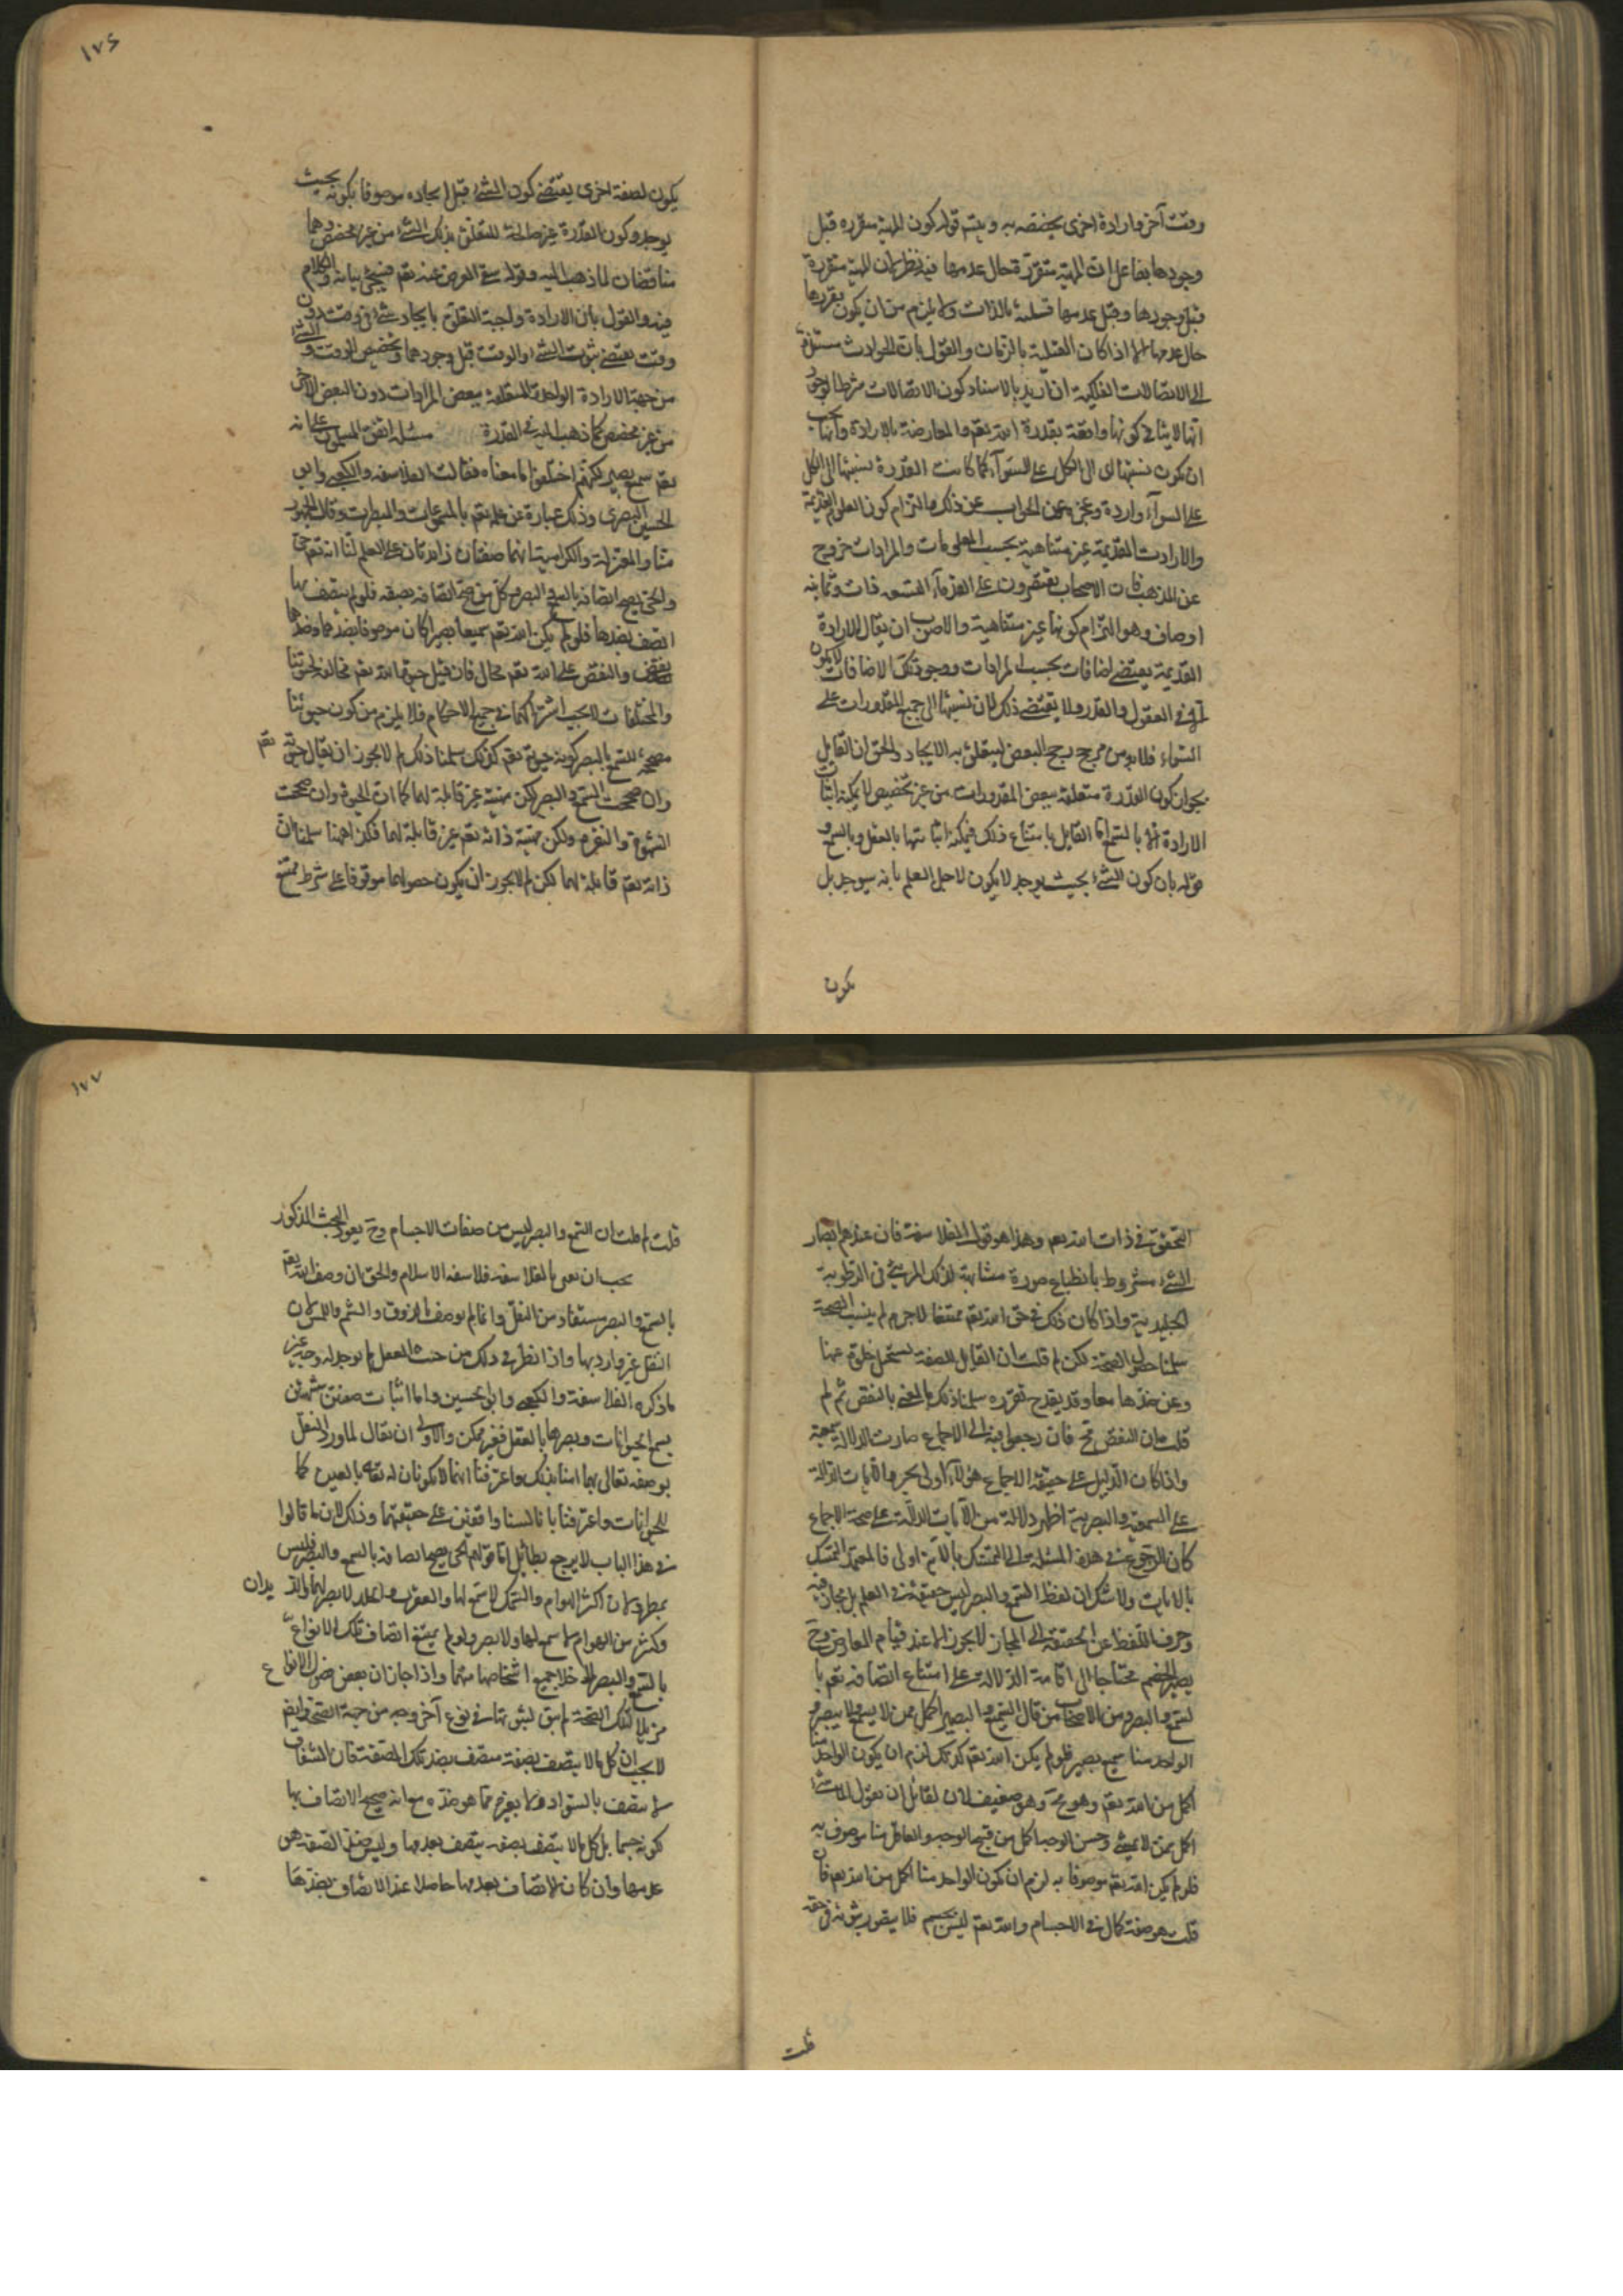 وقت آخر وارادة اخرى يخصصه به ويتم قوله كون المهية متقررة قبل
وجودها بفاعل ان المهية متقررة حال عدمها فيه نظر لان المهية متقررة
قبل وجودها وقبل عدمها قبلية بالذات ولا يلزم من ان يكون تقررها
حال عدمها الا اذا كان القبلية بالزمان والقول بان الحوادث مستندة
الى الاتصالات الفلكية ان اريد بالاسناد كون الاتصالات شرطا لوجود
انها لا ينافي كونها واقعة بقدرة الله تعم والمعارضة بالارادة وانها يجب
ان يكون نسبتها الى الكل على السواء كما كانت القدرة نسبتها الى الكل
على السواء واردة وعجز عن الجواب عن ذلك والتزام كون العلوم القديمة
والارادات القديمة غير متناهية بحسب المعلومات والمرادات خروج
عن المذهب فان الاصحاب يقتصرون على القدماء التسعة ذات وثمانية
اوصاف وهو التزام كونها غير متناهية والاصوب ان يقال الارادة
القديمة يقتضي اضافات بحسب المرادات ووجود تلك الاضافات لا يكون
الا في العقول والقدرة لا يقتضي ذلك لان نسبتها الى جميع المقدورات على
السواء فلا بد من مرجح يرجح البعض ليتعلق به الايجاد والحق ان القايل
بجواز كون القدرة متعلقة ببعض المقدورات من غير تخصيص لا يمكنه اثبات
الارادة الا بالسمع اما القايل بامتناع ذلك فيمكنه اثباتها بالعقل وبالسمع
قوله بان كون الشيء بحيث يوجد لا يكون لاجل العلم بانه سيوجد بل
يكون
١٧٦
يكون لصفة اخرى يقتضي كون الشيء قبل ايجاده موصوفا بكونه بحيث
يوجد وكون القدرة غير صالحة للتعلق بذلك الشيء من غير مخصص وهما
مناقضان لما ذهب اليه وقوله في الغرض عنه تعم فسيجئ بيانه والكلام
فيه والقول بان الارادة واجبة التعلق بايجاد شيء في وقت دون
وقت يقتضي ثبوت الشيء والوقت قبل وجودهما وتخصيص الوقت والشيء
من جهة الارادة الواحدة المتعلقة ببعض المرادات دون البعض الآخر
من غير مخصص كما ذهب اليه في القدرة مسئلة اتفق المسلمون على انه
تعم سميع بصير لكنهم اختلفوا في معناه فقالت الفلاسفة والكعبي وابو
الحسين البصري وذلك عبارة عن علمه تعم بالمسموعات والمبصرات وقال الجمهور
منا والمعتزلة والكرامية انهما صفتان زائدتان على العلم لنا انه تعم حي
والحي يصح اتصافه بالسمع والبصر وكل من صح اتصافه بصفة فلو لم يتصف بها
اتصف بضدها فلو لم يكن الله تعم سميعا بصيرا كان موصوفا بضدهما وضدهما
نقص والنقص على الله تعم محال فان قيل حيوة الله تعم مخالفة لحيوتنا
والمختلفات لا يجب اشتراكهما في جميع الاحكام فلا يلزم من كون حيوتنا
مصححة للسمع والبصر كون حيوته تعم كذلك سلمنا ذلك لم لا يجوز ان يقال حيوته تعم
وان صححت السمع والبصر لكن مهيته غير قابلة لهما كما ان الحيوة وان صححت
الشهوة والنفرة ولكن مهية ذاته تعم غير قابلة لهما فكذا ههنا سلمنا ان
ذاته تعم قابلة لهما لكن لم لا يجوز ان يكون حصولهما موقوفا على شرط ممتنع
التحقق في ذات الله تعم وهذا هو قول الفلاسفة فان عندهم ابصار
الشيء مشروط بانطباع صورة مشابهة لذلك المرئي في الرطوبة
الجليدية واذا كان ذلك في حق الله تعم ممتنعا لاجرم لم يثبت الصحة
سلمنا حصول الصحة لكن لم قلت ان القابل للصفة يستحيل خلوه عنها
وعن ضدها معا وقد يقدح تقرره سلمنا ذلك ما المعني بالنقص ثم لم
قلت ان النقص مح فان رجعوا فيه الى الاجماع صارت الدلالة سمعية
واذا كان الدليل على حقيقة الاجماع هو الآية اولى بحرم الآيات الدالة
على السمعية والبصرية اظهر دلالة من الآيات الدالة على صحة الاجماع
كان الرجوع في هذه المسئلة الى التمسك بالآية اولى فالمعتمد التمسك
بالايات ولا شك ان لفظ السمع والبصر ليس حقيقة في العلم بل مجاز فيه
وصرف اللفظ عن الحقيقة الى المجاز لا يجوز الا عند قيام المعارض وح
يصير الخصم محتاجا الى اقامة الدلالة على امتناع اتصافه تعم با
لسمع والبصر ومن الاصحاب من قال السميع والبصير اكمل ممن لا يسمع ولا يبصر و
الواحد منا سميع بصير فلو لم يكن الله تعم كذلك لزم ان يكون الواحد منا
اكمل من الله تعم وهو مح وهو ضعيف لان لقائل ان يقول الماشي
اكمل ممن لا يمشي وحسن الوجه اكمل من قبيح الوجه والعاقل منا موصوف به
فلو لم يكن الله تعم موصوفا به لزم ان يكون الواحد منا اكمل من الله تعم فان
قلت هو صفة كمال في الاجسام والله تعم ليس بجسم فلا يتصور ثبوته في حقه
قلت
١٧٧
قلت لم قلت ان السمع والبصر ليس من صفات الاجسام وح يعود البحث المذكور
يجب ان نعني بالفلاسفة فلاسفة الاسلام والحق ان وصف الله تعم
بالسمع والبصر مستفاد من النقل وانما لم يوصف بالذوق والشم واللمس لان
النقل غير وارد بها واذا نظر في ذلك من حيث العقل لم يوجد له وجه غير
ما ذكره الفلاسفة والكعبي وابو الحسين واما اثبات صفتين شبيهتين
بسمع الحيوانات وبصرها بالعقل فغير ممكن والاولى ان يقال لما ورد النقل
بوصفه تعالى بهما امنا بذلك واعترفنا انهما لا يكونان له تعم بالعين كما
للحيوانات واعترفنا بانا لسنا واقفين على حقيقتهما وذلك لان ما قالوا
في هذا الباب لا يرجع بطائل اما قولهم الحي يصح اتصافه بالسمع والبصر فليس
بمطرد لان اكثر الهوام والسمك لا سمع لها والعقرب والخلد لا بصر لهما والديدان
وكثير من الهوام لا سمع لها ولا بصر ولو لم يمتنع اتصاف تلك الانواع
بالسمع والبصر لما خلا جميع اشخاصها منهما واذا جاز ان بعض فصول الانواع
مزيلا لتلك الصحة لم يبق لثبوتها في نوع آخر وجه من جهة الصحة وايضا
لا يجب ان كل ما لا يتصف بصفة متصف بضد تلك الصفة فان الشفاف
لا يتصف بالسواد ولا بغيره مما هو ضده مع انه صحيح الاتصاف بها
كونه جسما بل كل ما لا يتصف بصفة يتصف بعدمها وليس ضد الصفة هو
عدمها وان كان الاتصاف بعدمها حاصلا عند الاتصاف بضدها